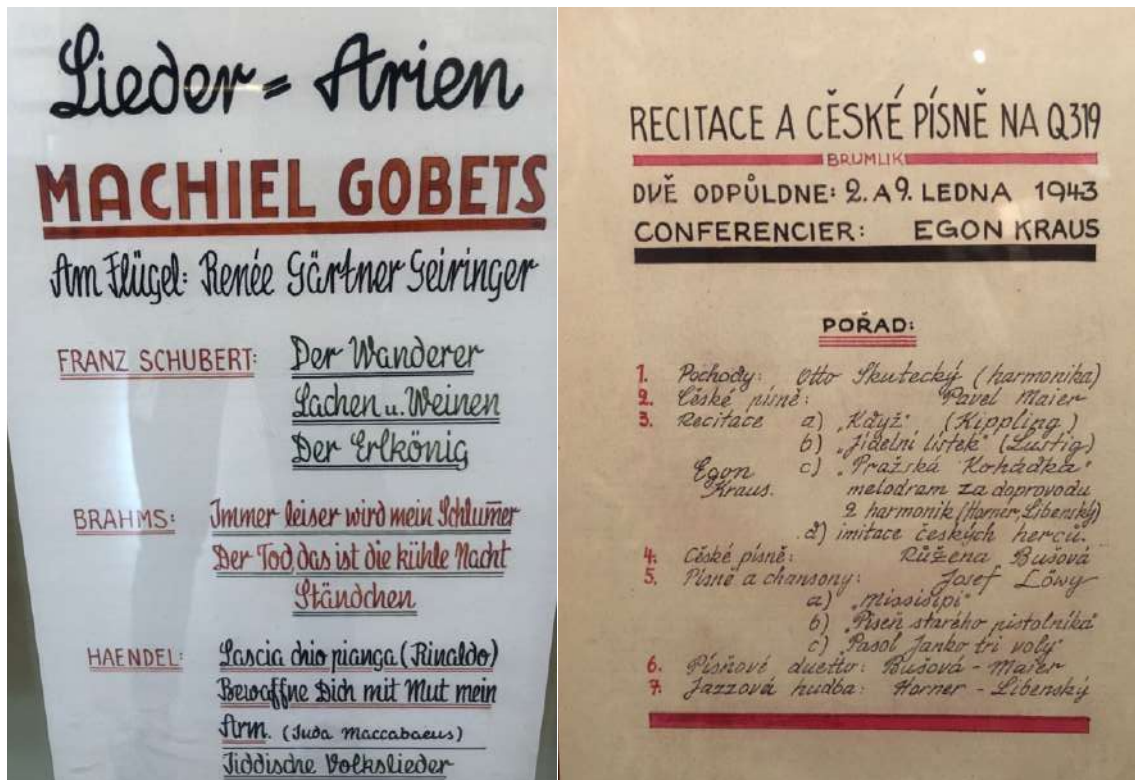 Lieder = Arien
MACHIEL GOBETS
Am Flügel: Renée Gärtner Geiringer
FRANZ SCHUBERT: Der Wanderer
Lachen u. Weinen
Der Erlkönig
BRAHMS: Immer leiser wird mein Schlum̅er
Der Tod, das ist die kühle Nacht
Ständchen
HAENDEL: Lascia chio pianga (Rinaldo)
Bewaffne Dich mit Mut mein
Arm. (Juda Maccabaeus)
Jiddische Volkslieder
RECITACE A CĚSKÉ PÍSNĚ NA Q319
BRUMLIK
DVĚ ODPŮLDNE: 2. A 9. LEDNA 1943
CONFERENCIER: EGON KRAUS
POŘAD:
1. Pochody: Otto Skutecký (harmonika)
2. České písně: Pavel Maier
3. Recitace a) „Když" (Kippling)
b) „Jídelní lístek" (Lustig)
Egon c) „Pražská Kohádka"
Kraus. melodram za doprovodu
2 harmonik (Horner, Libenský)
d) imitace českých herců.
4. České písně: Růžena Bušová
5. Písně a chansony: Josef Löwy
a) „Missisipi"
b) „Píseň starého pistolníka"
c) „Pasol Janko tri voly"
6. Písňové duetto: Bušová - Maier
7. Jazzová hudba: Horner - Libenský